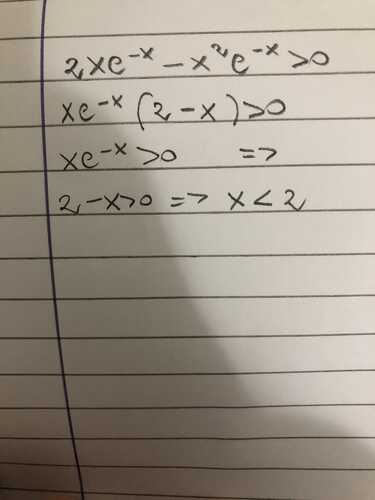 2xe⁻ˣ - x²e⁻ˣ > 0
xe⁻ˣ (2 - x) > 0
xe⁻ˣ > 0 =>
2 - x > 0 => x < 2